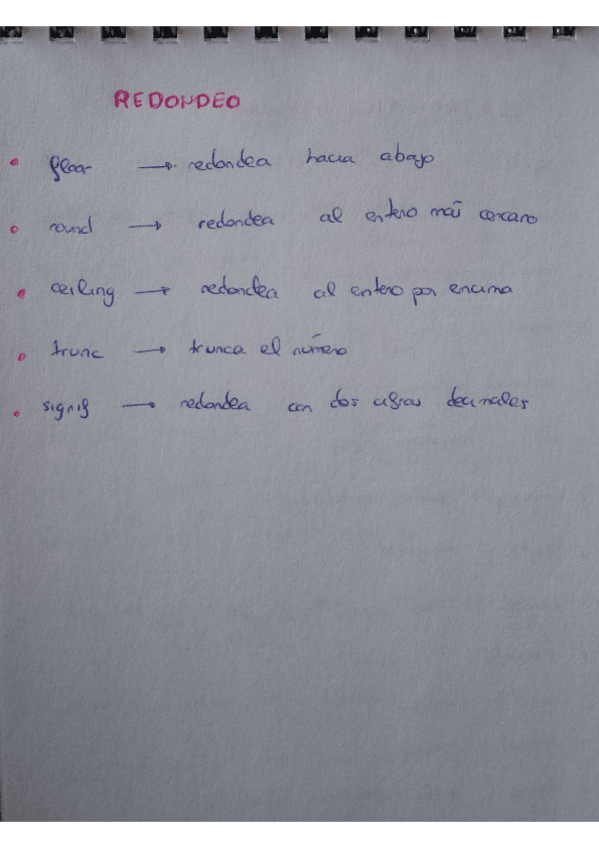 REDONDEO
• floor → redondea hacia abajo
• round → redondea al entero más cercano
• ceiling → redondea al entero por encima
• trunc → trunca el número
• signif → redondea con dos cifras decimales